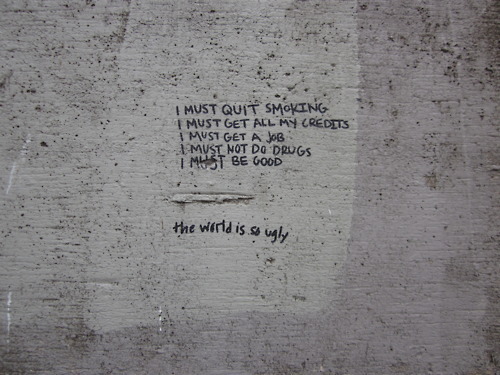 I MUST QUIT SMOKING
I MUST GET ALL MY CREDITS
I MUST GET A JOB
I MUST NOT DO DRUGS
I MUST BE GOOD
the world is so ugly